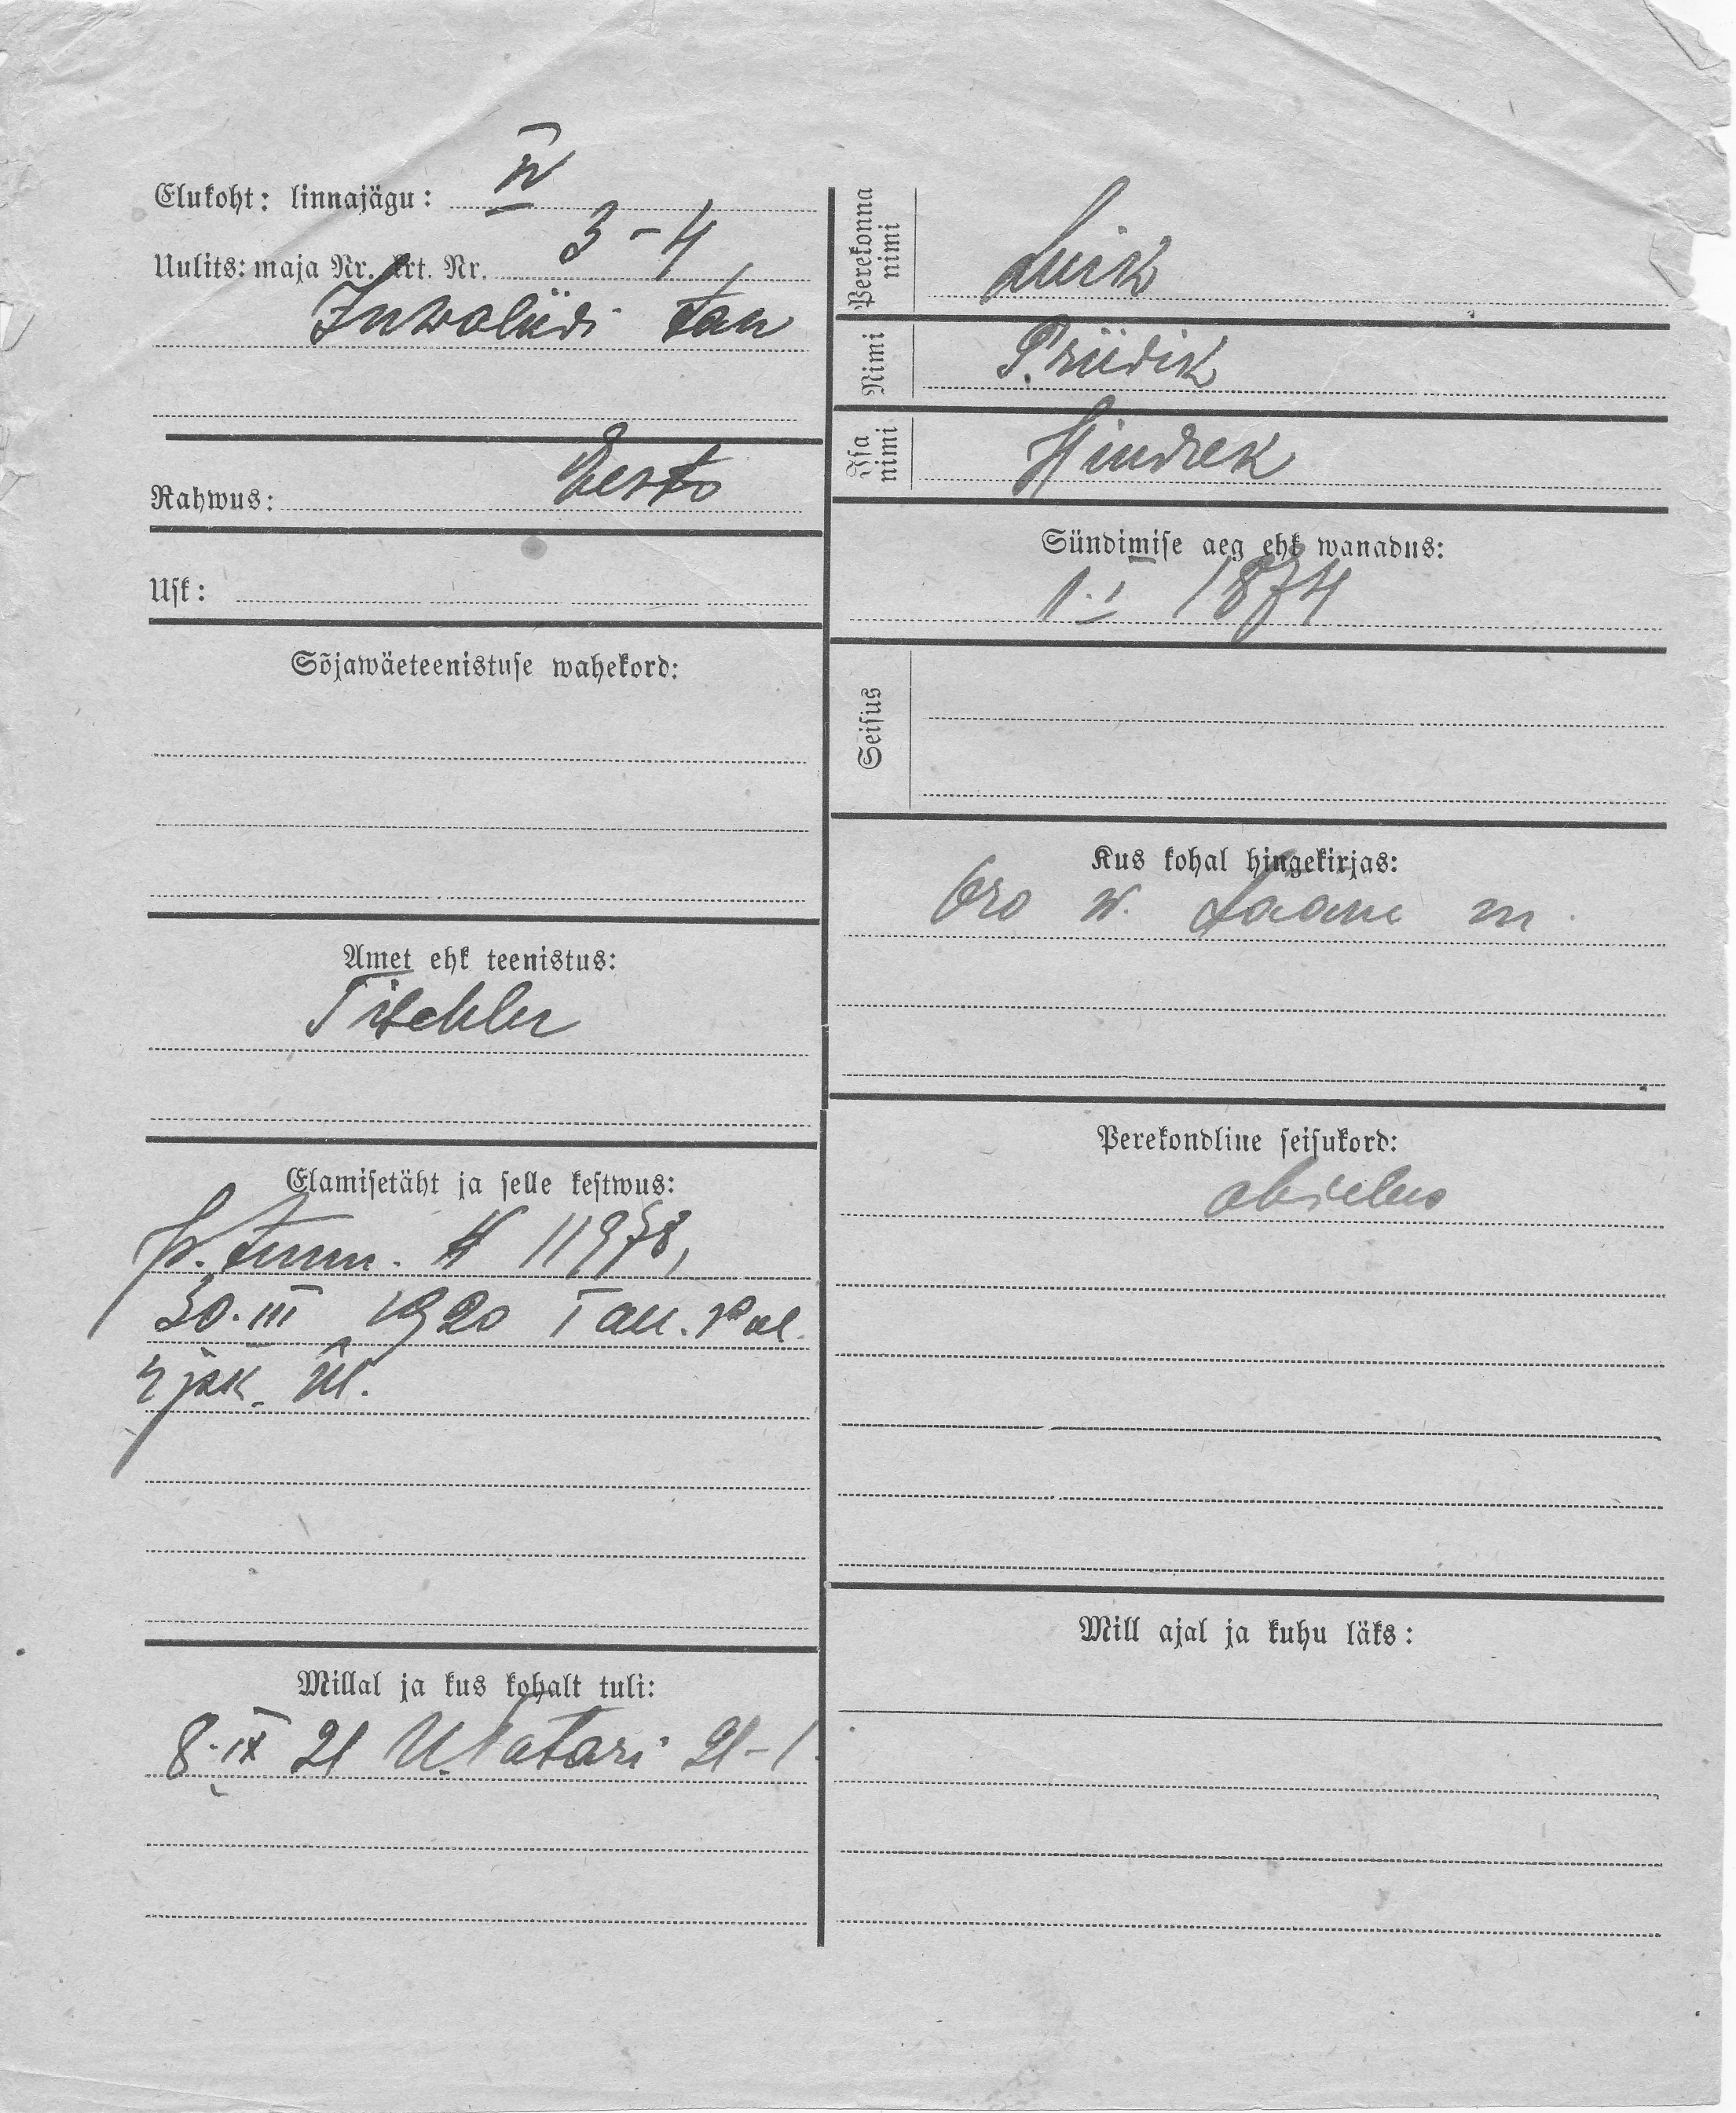 Elukoht: linnajägu: IV
Uulits: maja Nr. krt. Nr. 3-4
Inwaliidi tän
Rahwus: Eesti
Usk:
Sõjawäeteenistuse wahekord:
Amet ehk teenistus:
Tischler
Elamisetäht ja selle kestwus:
tunn. 11978,
30.III 1920 Tall. Pol.
4 jsk. ül.
Millal ja kus kohalt tuli:
8.IX 21 U. Tatari 21-1
Perekonna nimi
Luik
Nimi
Priidik
Isa nimi
Hindrek
Sündimise aeg ehk wanadus:
1.I 1874
Seisus
Kus kohal hingekirjas:
Oro w. Lääne m.
Perekondline seisukord:
abielus
Mill ajal ja kuhu läks: